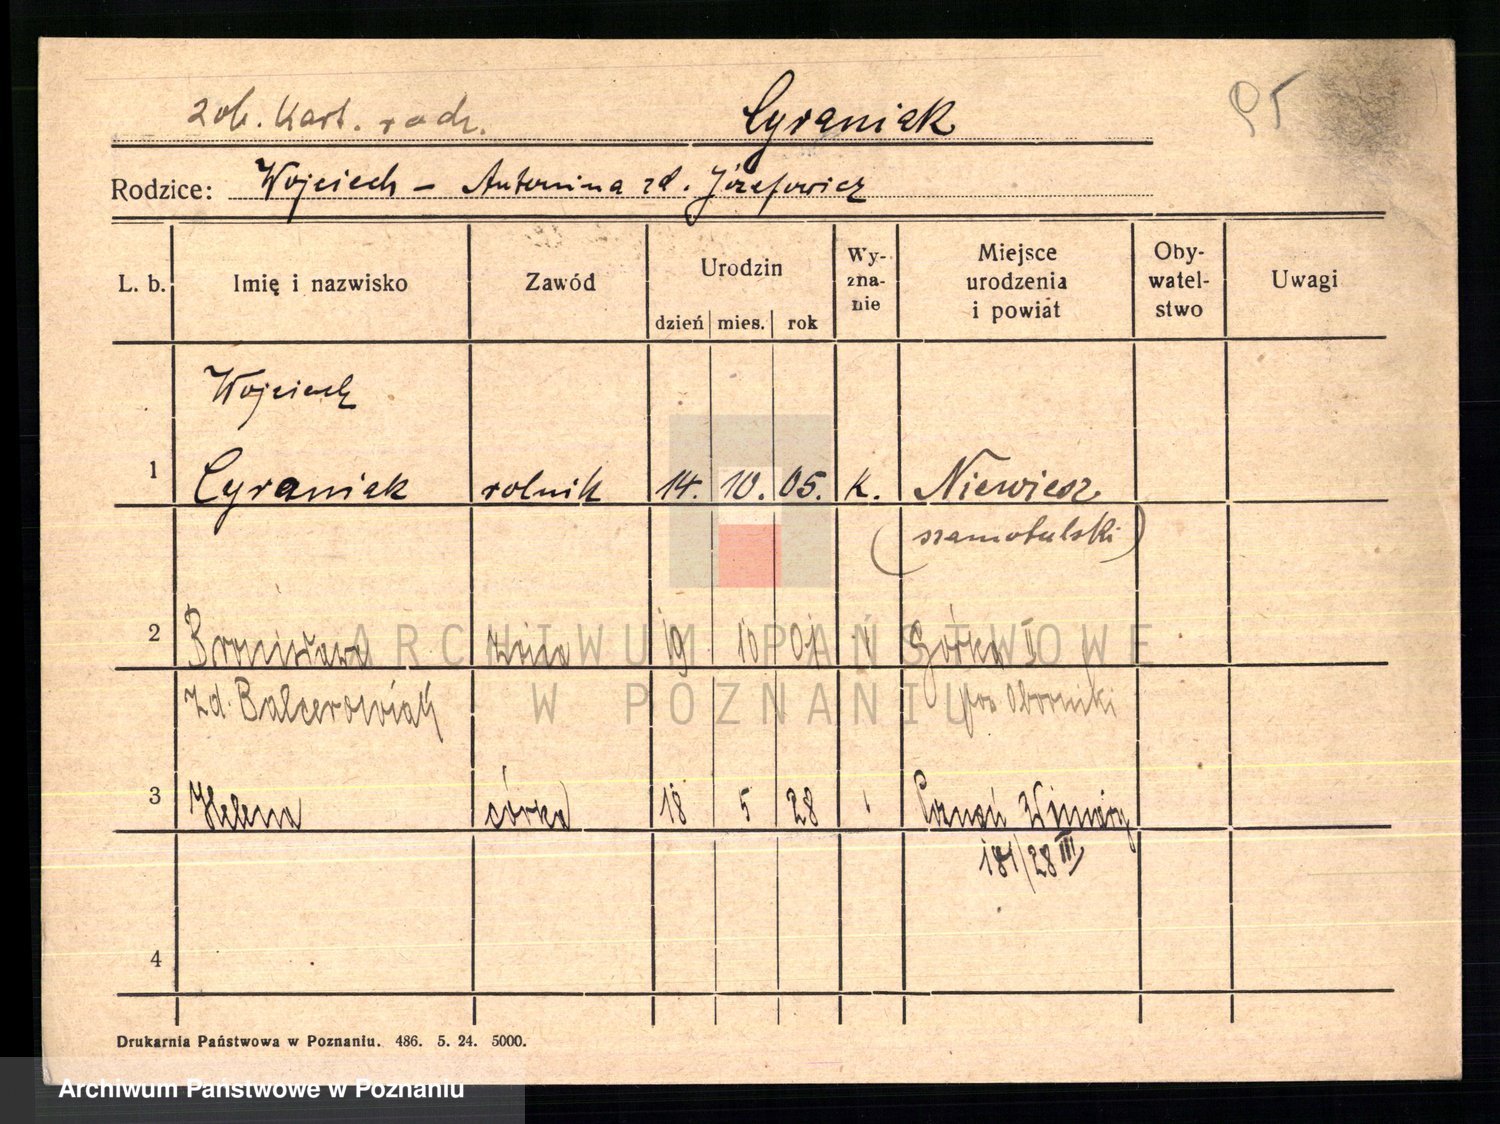 zob. Kart. rodz. Cyraniak
Rodzice: Wojciech – Antonina zd. Józefowicz
L. b. Imię i nazwisko Zawód Urodzin dzień mies. rok Wy-zna-nie Miejsce urodzenia i powiat Oby-watel-stwo Uwagi
Wojciech
1 Cyraniak rolnik 14. 10. 05. k. Niewiesz
(szamotulski)
2 Bronisława żona 19 10 Górka II
zd. Balcerowiak pow Oborniki
3 Helena córka 18 5 28 Poznań Winiary
181/28 III
4
Drukarnia Państwowa w Poznaniu. 486. 5. 24. 5000.
ARCHIWUM PAŃSTWOWE
W POZNANIU
Archiwum Państwowe w Poznaniu